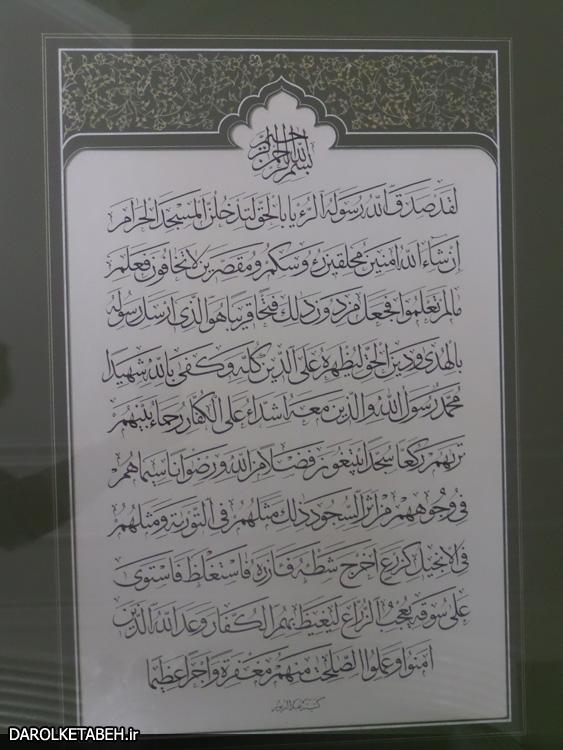 بسم الله الرحمن الرحيم
لقد صدق الله رسوله الرءيا بالحق لتدخلن المسجد الحرام
ان شاء الله امنين محلقين رءوسكم ومقصرين لا تخافون فعلم
ما لم تعلموا فجعل من دون ذلك فتحا قريبا هو الذى ارسل رسوله
بالهدى ودين الحق ليظهره على الدين كله وكفى بالله شهيدا
محمد رسول الله والذين معه اشداء على الكفار رحماء بينهم
تريهم ركعا سجدا يبتغون فضلا من الله ورضوانا سيماهم
فى وجوههم من اثر السجود ذلك مثلهم فى التورية ومثلهم
فى الانجيل كزرع اخرج شطئه فازره فاستغلظ فاستوى
على سوقه يعجب الزراع ليغيظ بهم الكفار وعد الله الذين
امنوا وعملوا الصلحت منهم مغفرة واجرا عظيما
DAROLKETABEH.ir